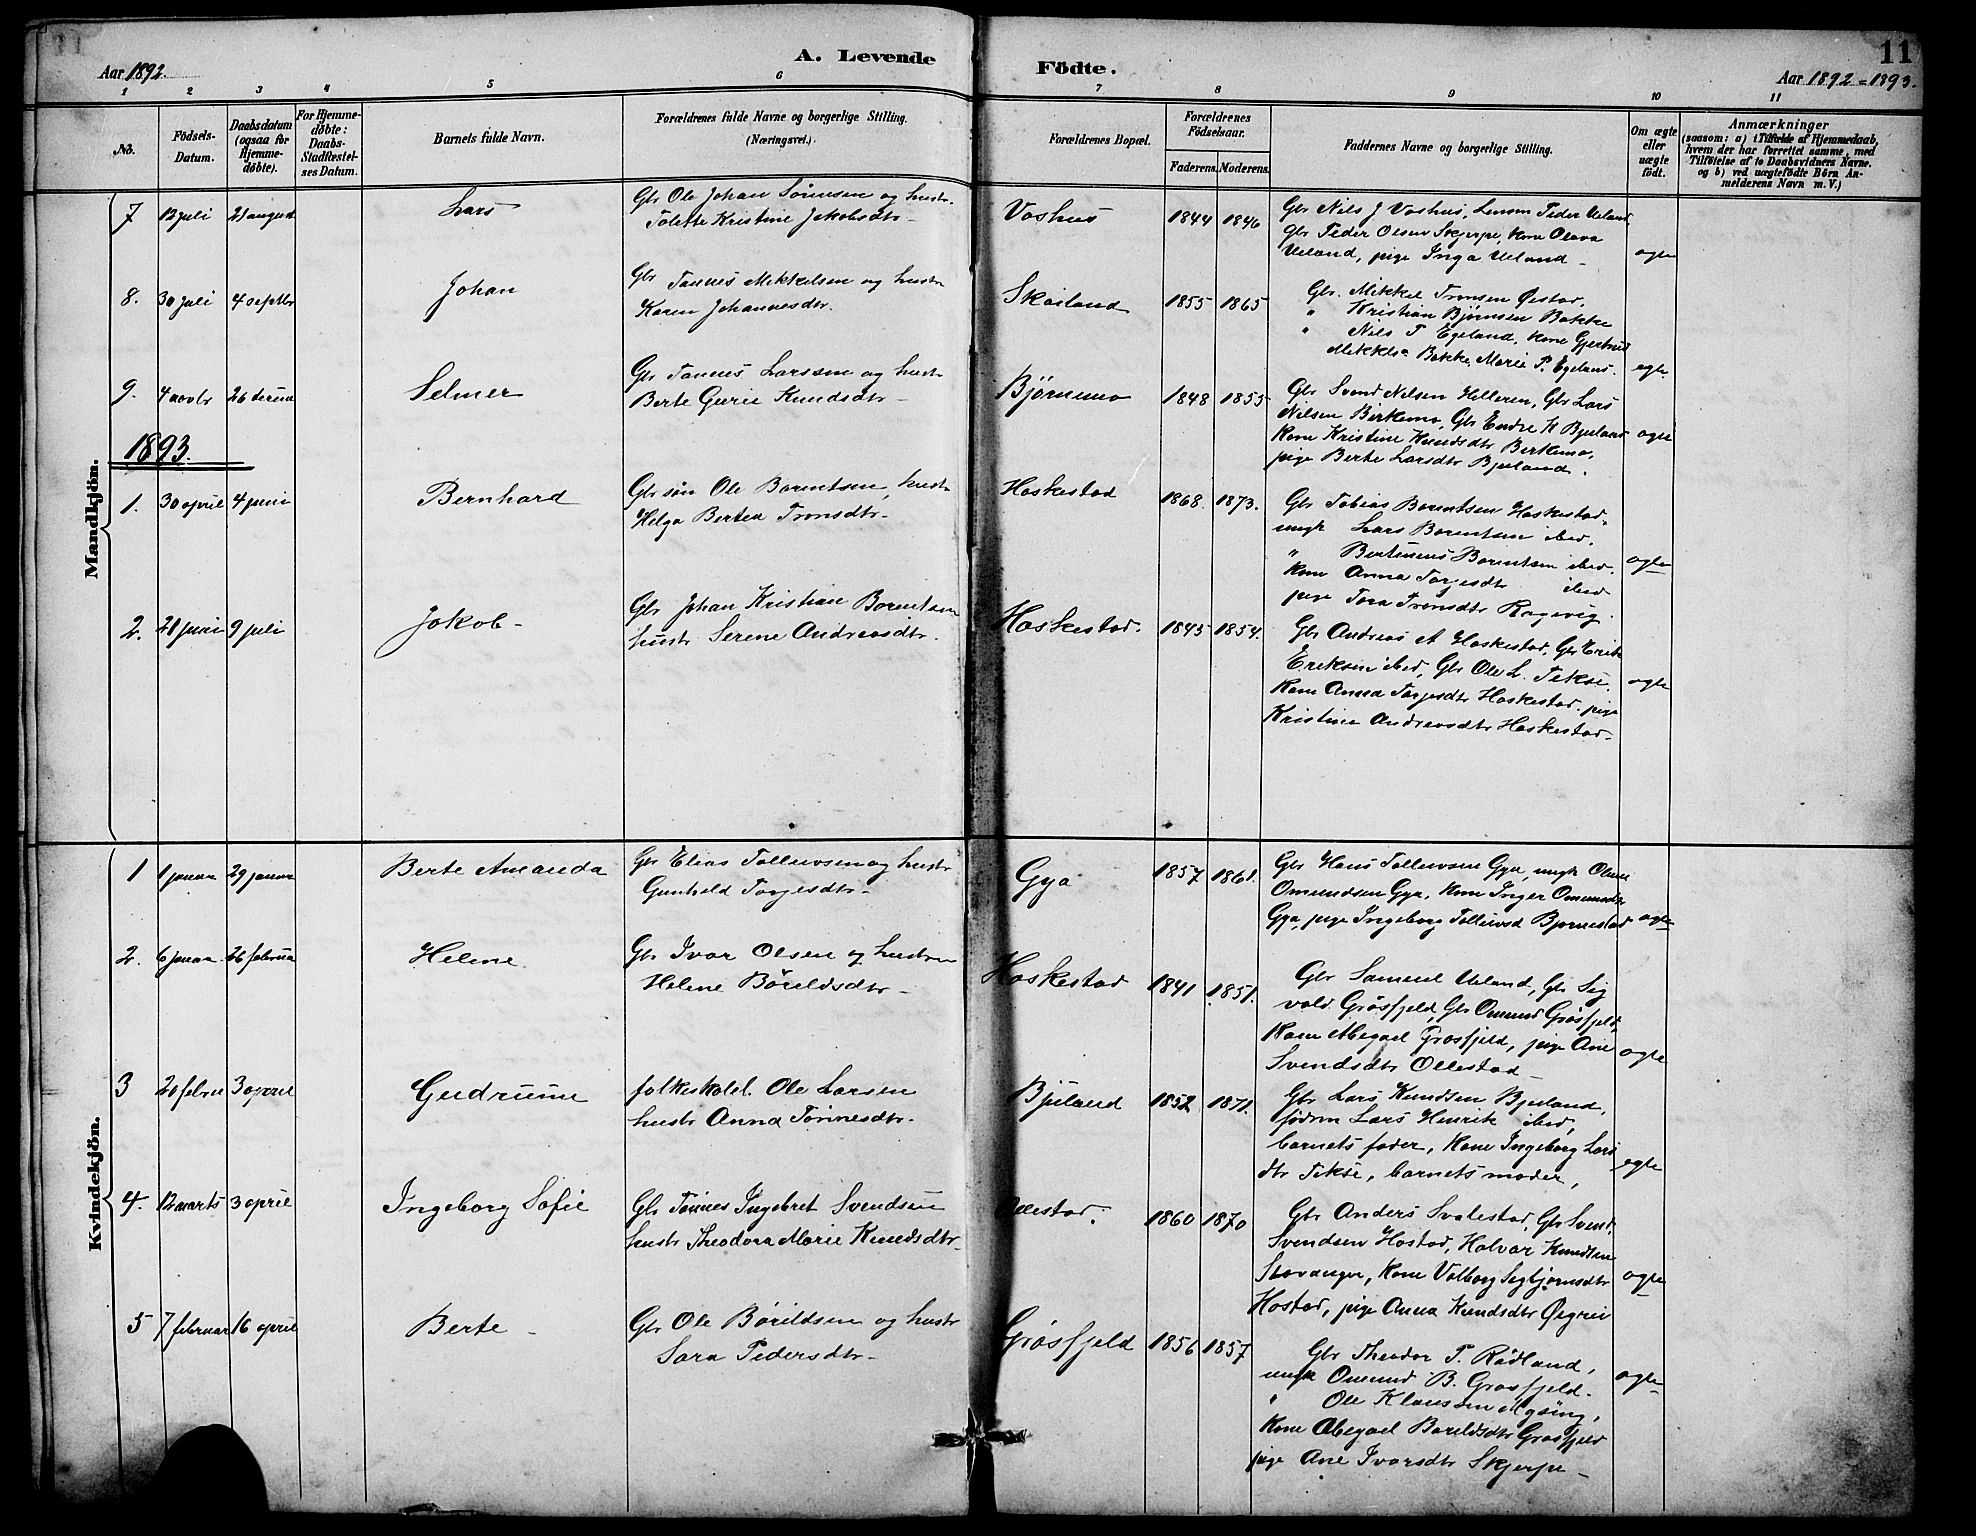 11
A. Levende Födte.
Aar 1892.
Aar 1892-1893.
1 2 3 4 5 6 7 8 9 10 11
No.
Födsels-Datum.
Daabsdatum (ogsaa for Hjemme-döbte).
For Hjemme-döbte: Daabs-Stadfæstel-ses Datum.
Barnets fulde Navn.
Forældrenes fulde Navne og borgerlige Stilling. (Næringsvei.)
Forældrenes Bopæl.
Forældrenes Födselsaar.
Faderens. Moderens.
Faddernes Navne og borgerlige Stilling.
Om ægte eller uægte födt.
Anmærkninger
(saasom: a) i Tilfælde af Hjemmedaab, hvem der har forrettet samme, med Tilföielse af to Daabsvidners Navne. og b) ved uægtefödte Börn An-melderens Navn m. V.)
Mandkjön.
7 12 juli 21 august Lars
Gbr Ole Johan Sørensen og hustr.
Tolette Kristine Jakobsdtr-
Voshus 1844 1846
Gbr Nils J Voshus, Lensm Peder Ueland,
Gbr Peder Olsen Skjerpe, kone Olava
Ueland, pige Inga Ueland -
ægte
8. 30 juli 4 septbr Johan
Gbr Tønnes Mikkelsen og hustr
Karen Johannesdtr.
Skailand 1855 1865
Gbr. Mikkel Tronsen Øestad,
" Kristian Bjørnsen Bakke
" Nils T Egeland, kone Gjertrud
Mikkelsd Bakke, Marie P. Egeland.
ægte
9. 4 novbr 26 decem Selmer
Gbr Tønnes Larssen og hustr
Berte Gurie Knudsdtr -
Bjørnemo 1848 1855
Gbr Svend Nilsen Helleren, Gbr Lars
Nilsen Birkemo, Gbr Endre K Bjuland
kone Kristine Knudsdtr Birkemo,
pige Berte Larsdtr Bjuland.
ægte
1893.
1. 30 april 4 juni Bernhard
Gbr søn Ole Berentsen, hustr
Helga Bertea Tronsdtr-
Haskestad 1868. 1873.
Gbr Tobias Berentsen Haskestad,
ungk Lars Berentsen ibid,
" Bertinius Berentsen ibid.
kone Anna Torjesdtr ibid
pige Tora Tronsdtr Rægevig.
ægte
2. 21 juni 9 juli Jakob-
Gbr Johan Kristian Berentsen
hustr Serene Andreasdtr.
Haskestad. 1845 1854.
Gbr Andreas A Haskestad, Gbr Erik
Eriksen ibid, Gbr Ole L. Tekse.
kone Anna Torjesdtr Haskestad. pige
Kristine Andreasdtr Haskestad-
ægte
Kvindekjön.
1 1 januar 29 januar Berte Amanda
Gbr Elias Tollevsen og hustr
Gunhild Torjesdtr-
Gya 1857 1861.
Gbr Hans Tollevsen Gya, ungk Omund
Omundsen Gya, kone Inger Omundsdtr
Gya, pige Ingeborg Tollevsd Bjornestad
ægte
2. 6 januar 26 februar Helene
Gbr Ivar Olsen og hustru
Helene Børildsdtr -
Haskestad 1841 1851.
Gbr Samuel Ueland, Gbr Sig
vald Grøsfjeld, Gbr Omund Grøsfjeld,
kone Abegael Grosfjeld, pige Ane
Svendsdtr Ollestad -
ægte
3 20 februar 3 april Gudrunne
folkeskolel. Ole Larsen
hustr Anna Tønnesdtr.
Bjuland 1852 1871.
Gbr Lars Knudsen Bjuland,
fødrm Lars Henrik ibid,
barnets fader, kone Ingeborg Lars
dtr Tekse, barnets moder,
ægte
4. 12 marts 3 april Ingeborg Sofie
Gbr Tønnes Ingebret Svendsen
hustr Theodora Marie Knudsdtr.
Ollestad. 1860 1870
Gbr Anders Svalestad, Gbr Svend
Svendsen Hastad, Halvor Knudsen
Stavanger, kone Valborg Segbjørnsdtr
Hastad, pige Anna Knudsdtr Øigrei
ægte
5 7 februar 16 april Berte -
Gbr Ole Børildsen og hustr
Sara Pedersdtr -
Grøsfjeld 1856 1857
Gbr Theodor T. Rødland,
ungk Omund B. Grøsfjeld.
" Ole Klaussen
kone Abegael Boreldsdtr Grosfjeld
pige Ane Ivarsdtr Skjerpe -
ægte